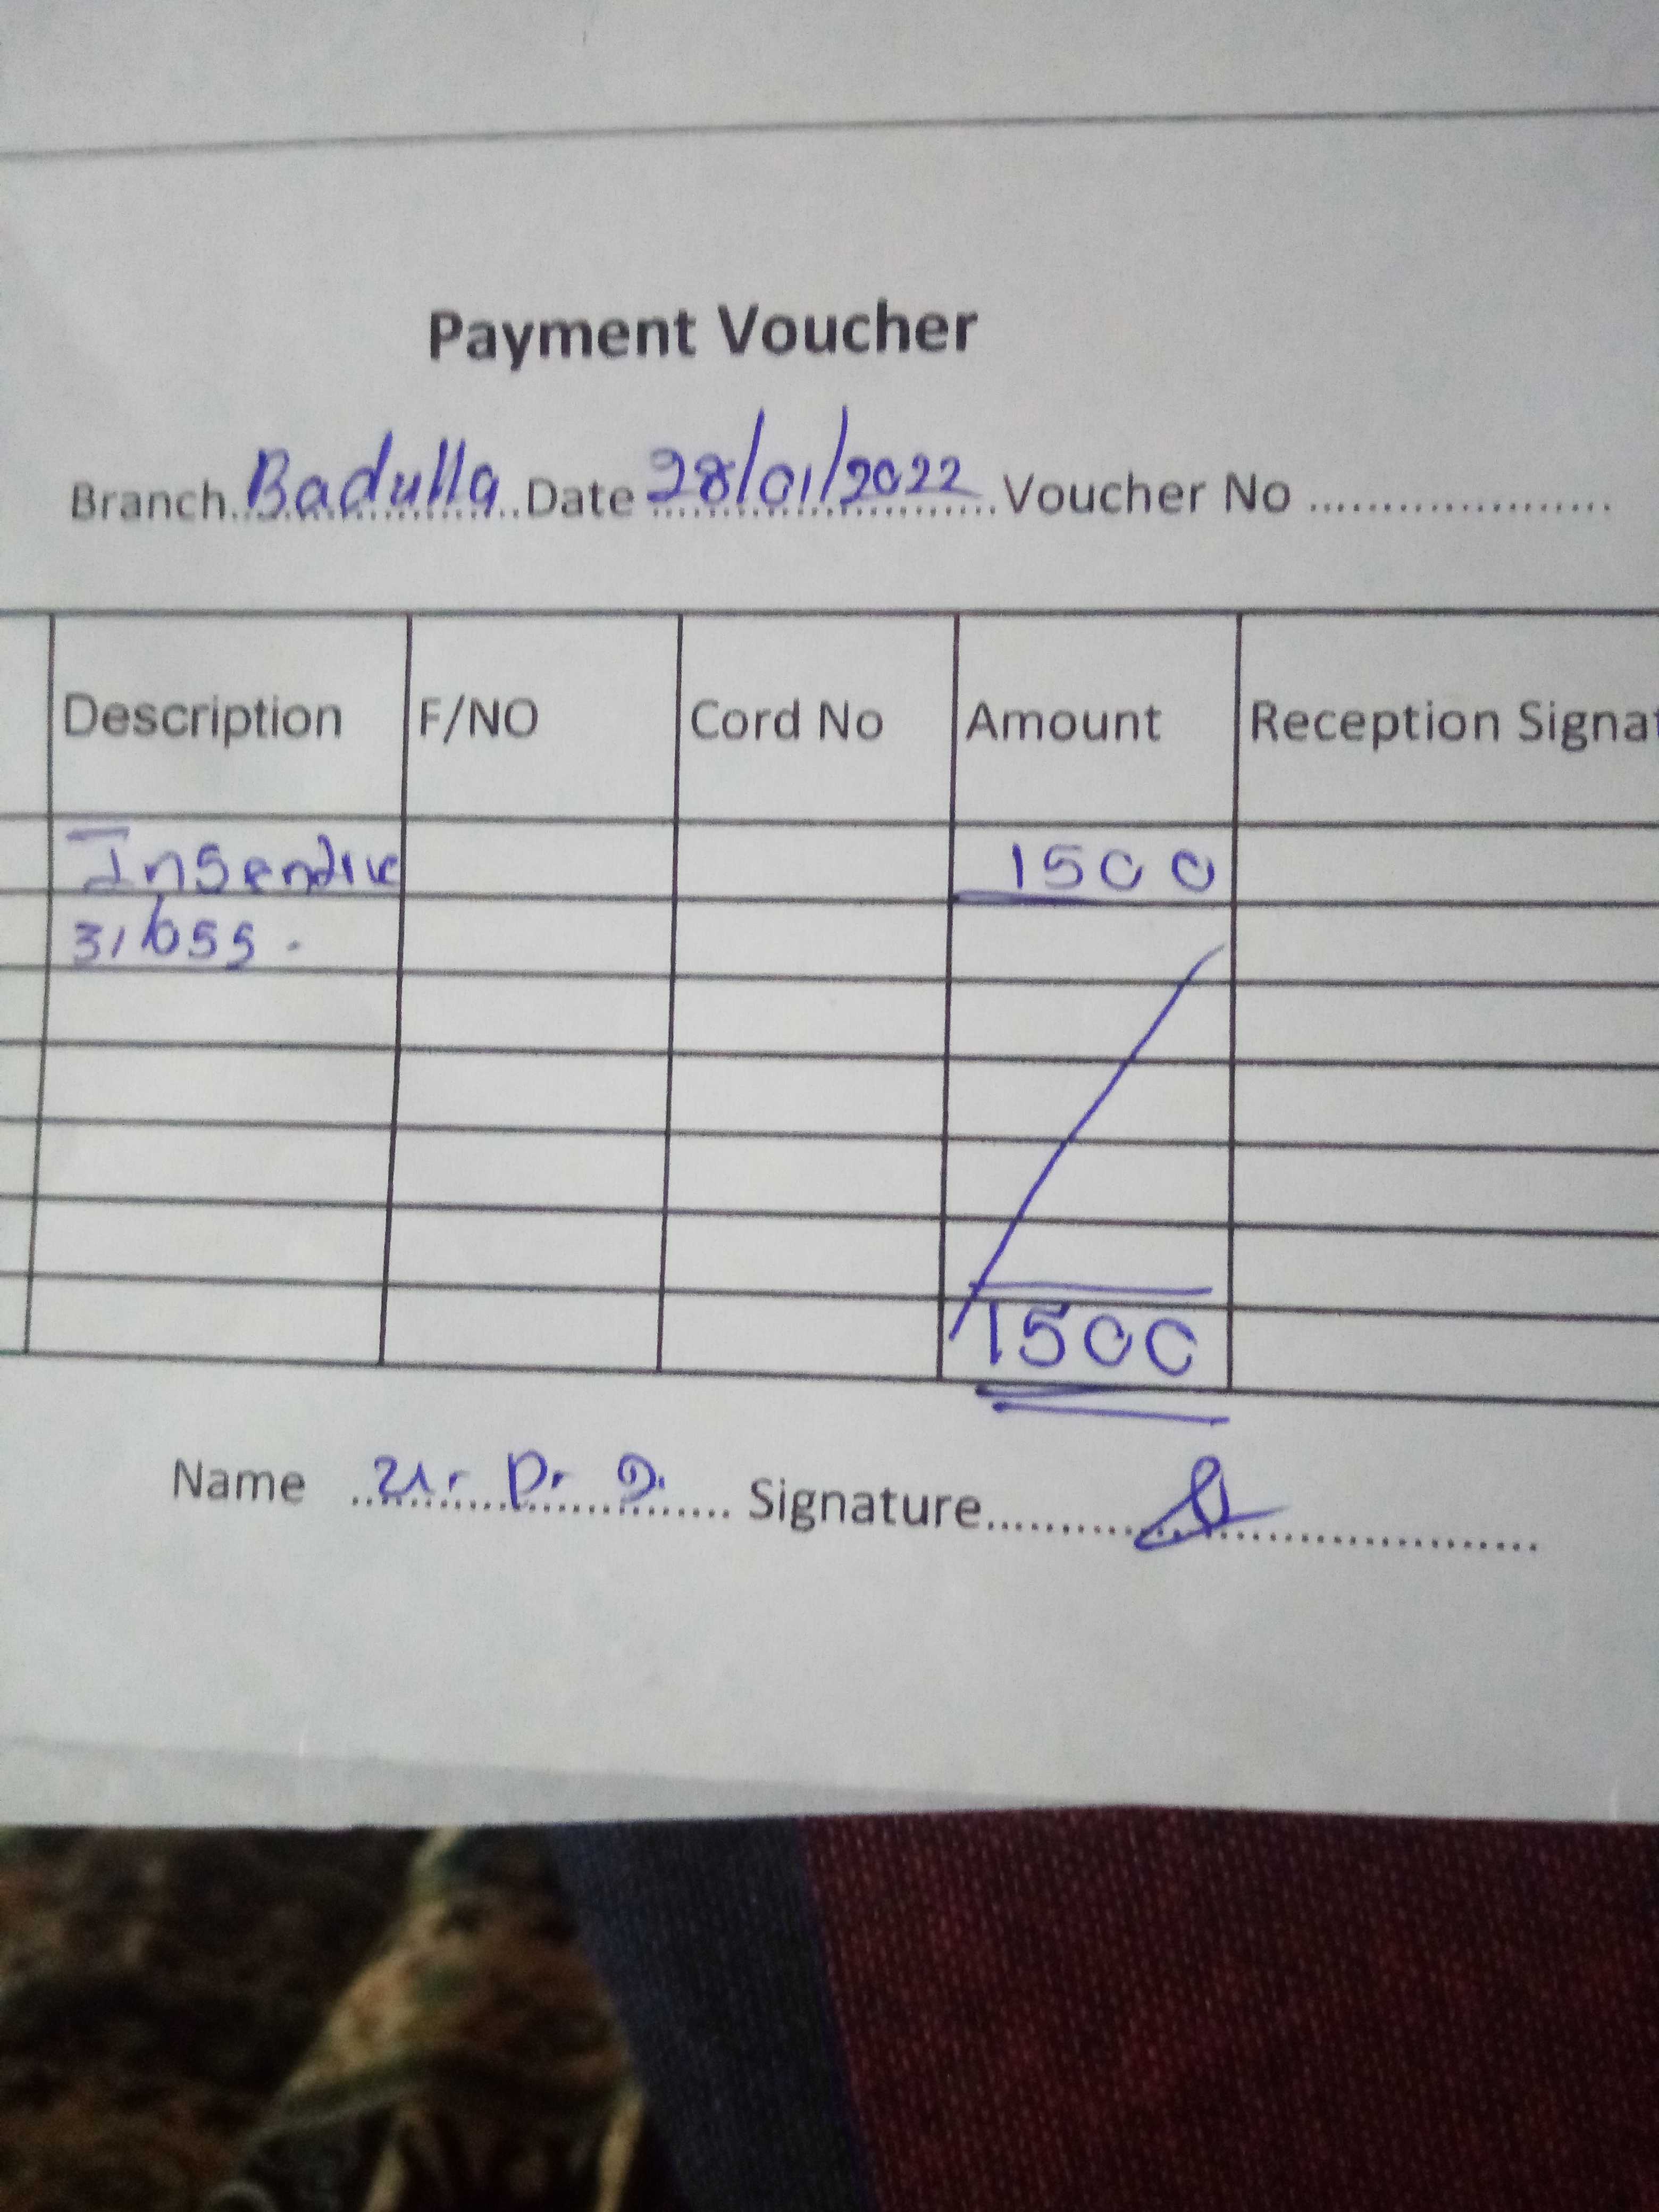 Payment Voucher
Branch Badulla Date 28/01/2022 Voucher No
Description F/NO Cord No Amount Reception Signat
Insentive 1500
1500
Name Signature